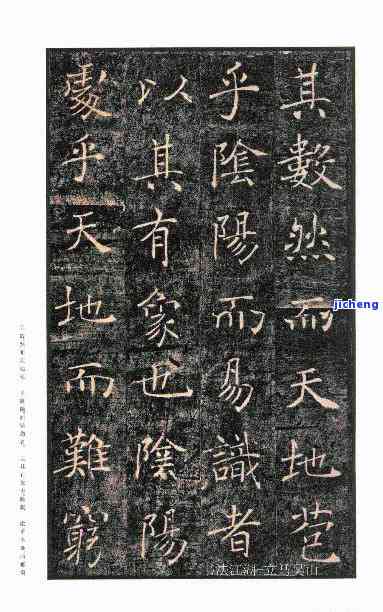 其數然而天地苞
乎陰陽而易識者
以其有象也陰陽
處乎天地而難窮
jicheng
法江湖-立马吴山